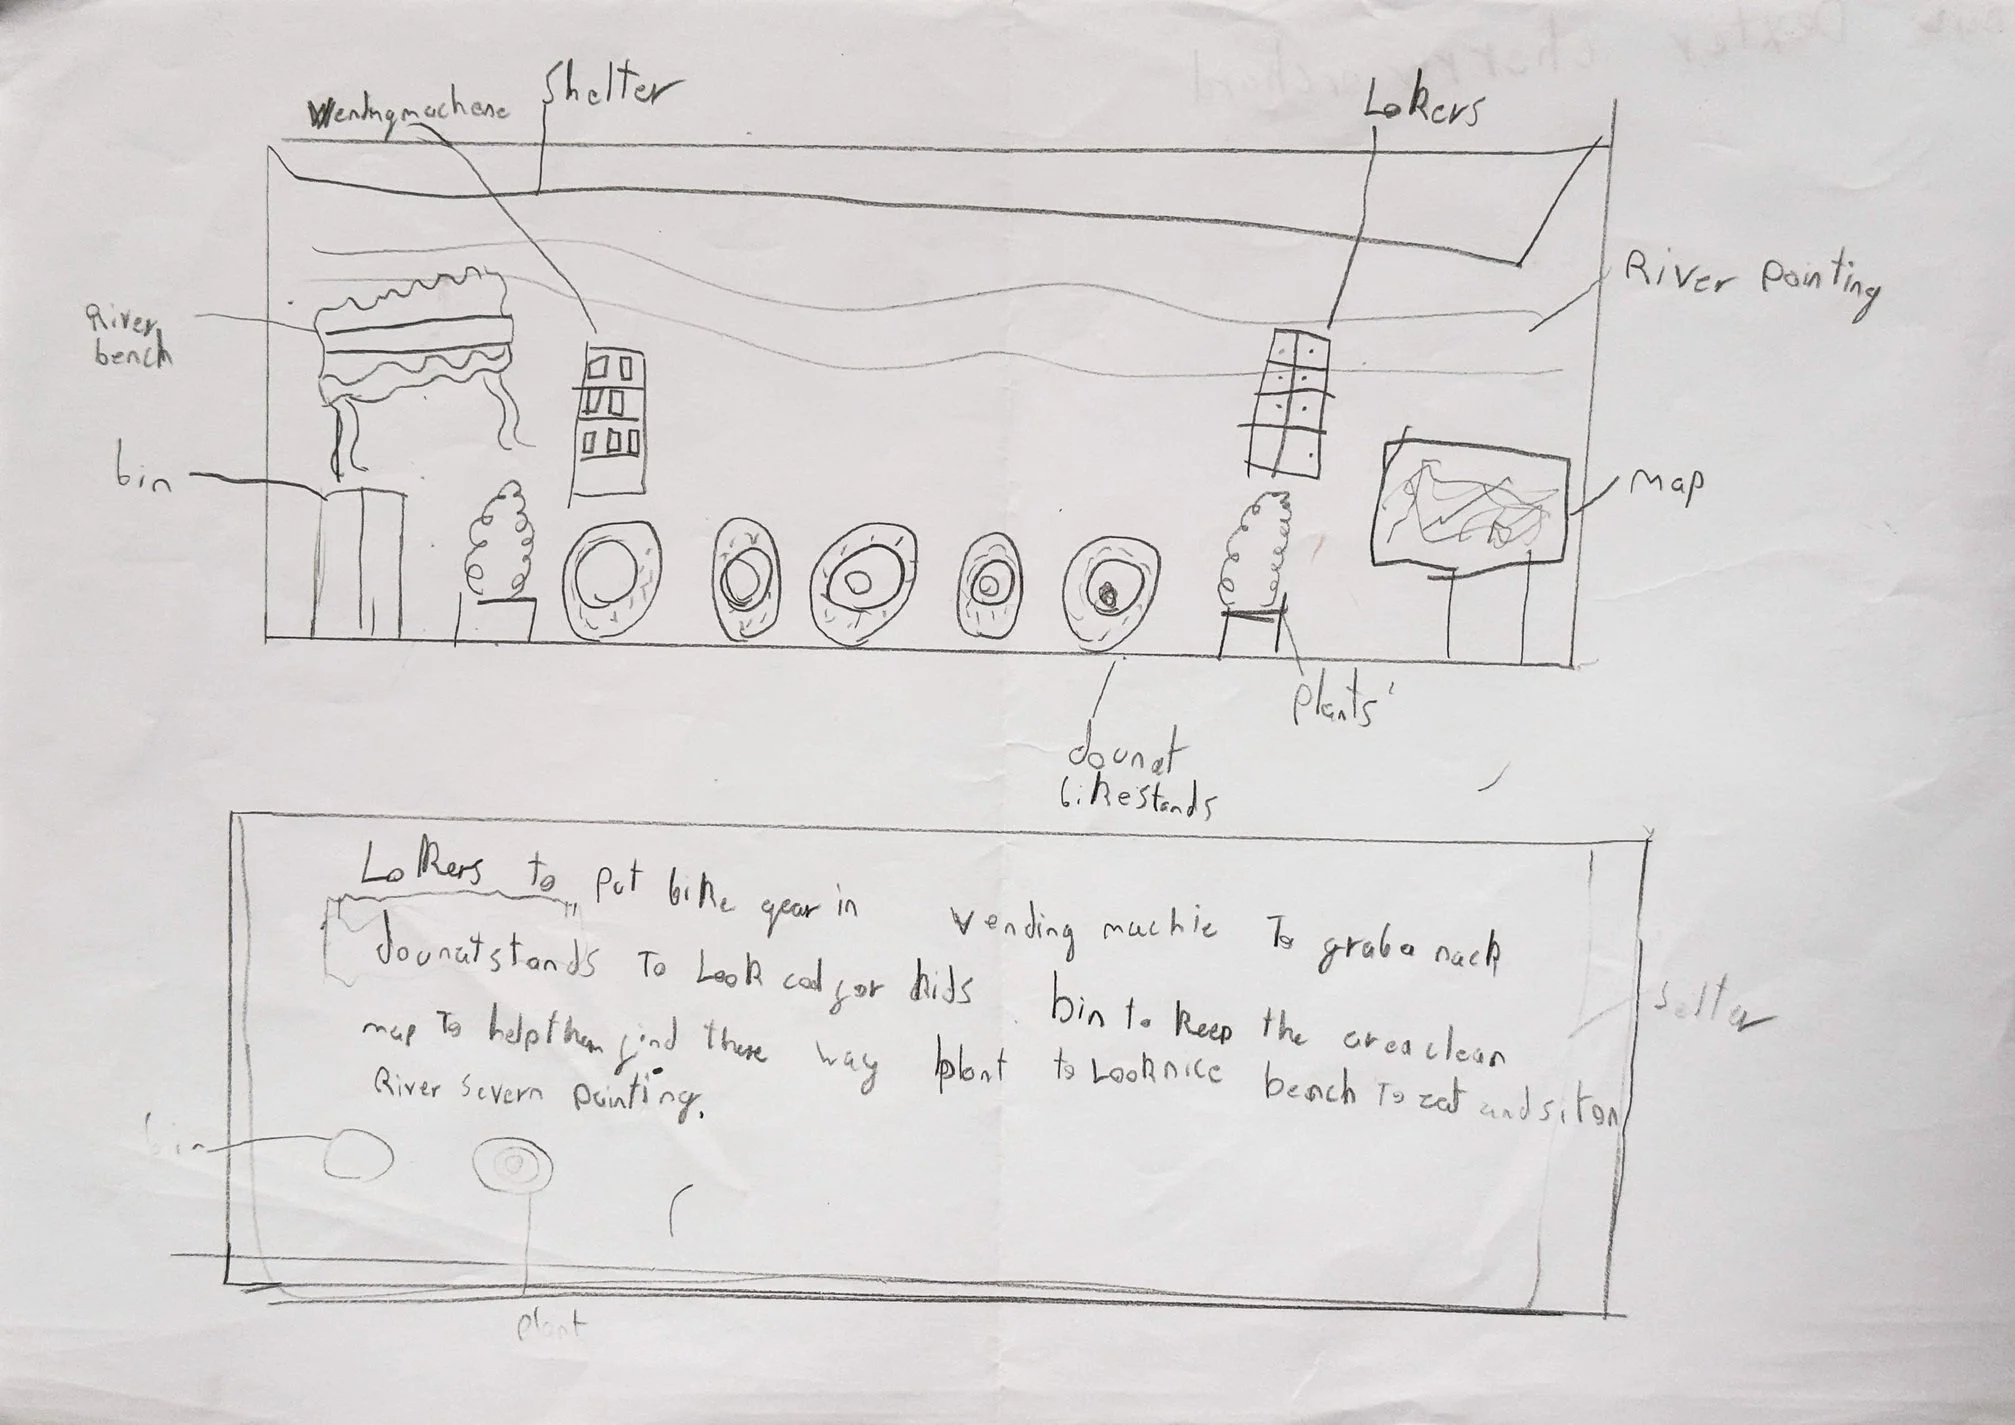 Vendingmachene
Shelter
Lokers
River painting
River
bench
bin
map
plants
dounat
bikestands
Lokers to put bike gear in vending machie To graba nack
dounatstands To Look cool for kids bin to keep the area clean
map To help them find there way plant to Look nice bench To eat and sit on
River severn painting.
selter
bin
plant